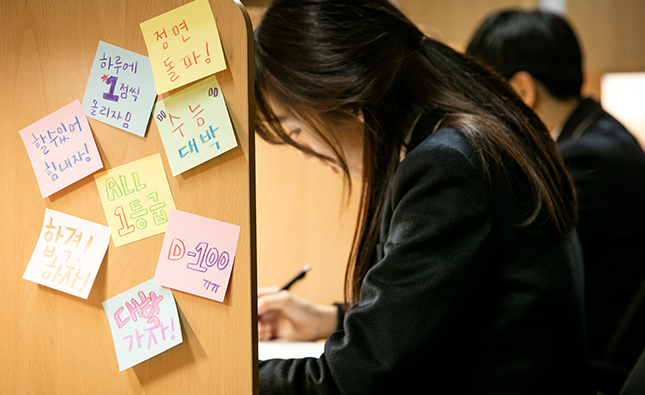 정면
돌파!
하루에
1점씩
올리자!!
"수능"
대박
할수있어
힘내자!
ALL
1등급
합격!
뽀
하자!
D-100
ㅠㅠ
대학
가자!